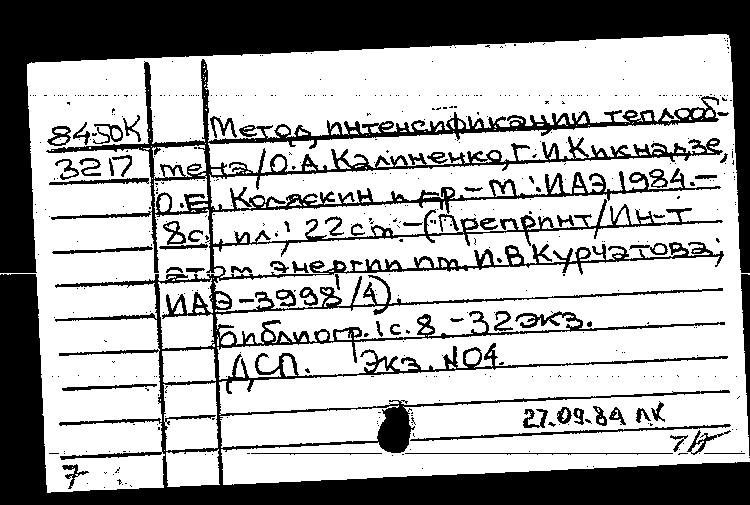 84-50К Метод интенсификации теплооб-
3217 мена/О.А.Калиненко, Г.И.Кикнадзе,
О.Е. Коляскин и др.- М.:ИАЭ, 1984.-
8с., ил.; 22см.-(Препринт/Ин-т
атом. энергии им. И.В.Курчатова;
ИАЭ-3998/4).
Библиогр.: с.8. -32экз.
ДСП. Экз. №04.
27.09.84 ЛК
7